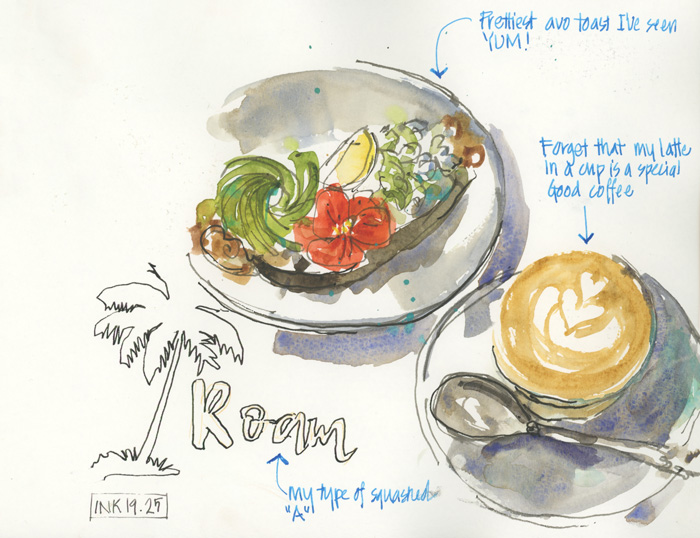 Prettiest avo toast I've seen
YUM!
Forget that my latte
in a cup is a special
Good coffee
Roam
my type of squashed
"A"
INK19.25